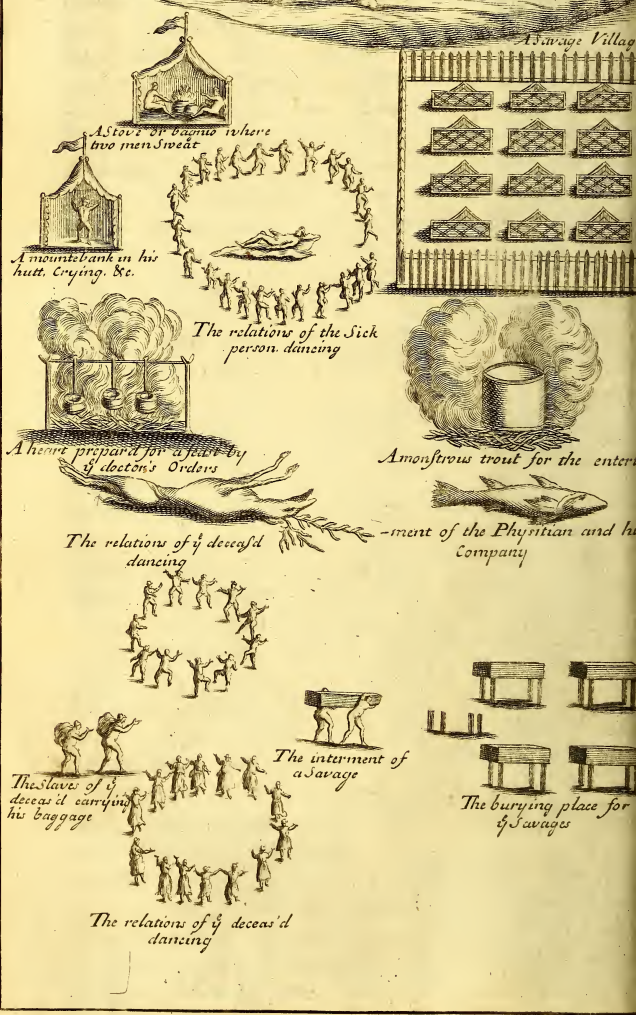 A Savage Villag
A Stove or bagnio where
two men Sweat
A mountebank in his
hutt, Crying. &c.
The relations of the Sick
person. dancing
A heart prepar'd for a feast by
ẙ doctor's Orders
A monſtrous trout for the entert
-ment of the Phyſitian and h
Company
The relations of ẙ deceaſd
dancing
The interment of
a Savage
The Slaves of ẙ
deceas'd carrying
his baggage
The burying place for
ẙ Savages
The relations of ẙ deceas'd
dancing